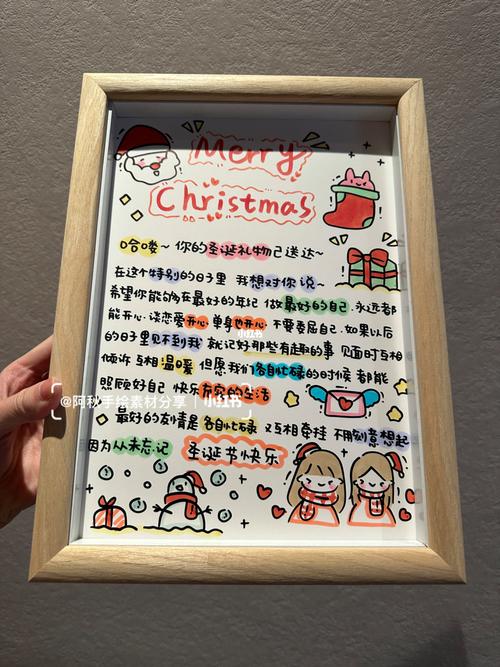 Merry
Christmas
哈喽~ 你的圣诞礼物已送达~
在这个特别的日子里 我想对你说~
希望你能够在最好的年纪 做最好的自己.永远都
能开心.谈恋爱开心 单身也开心 不要委屈自己.如果以后
的日子里见不到我 就记好那些有趣的事 见面时互相
倾诉 互相温暖 但愿我们各自忙碌的时候 都能
照顾好自己 快乐充实的生活
最好的友情是 各自忙碌 又互相牵挂 不用刻意想起
因为从未忘记 圣诞节快乐
@阿秋手绘素材分享 | 小红书